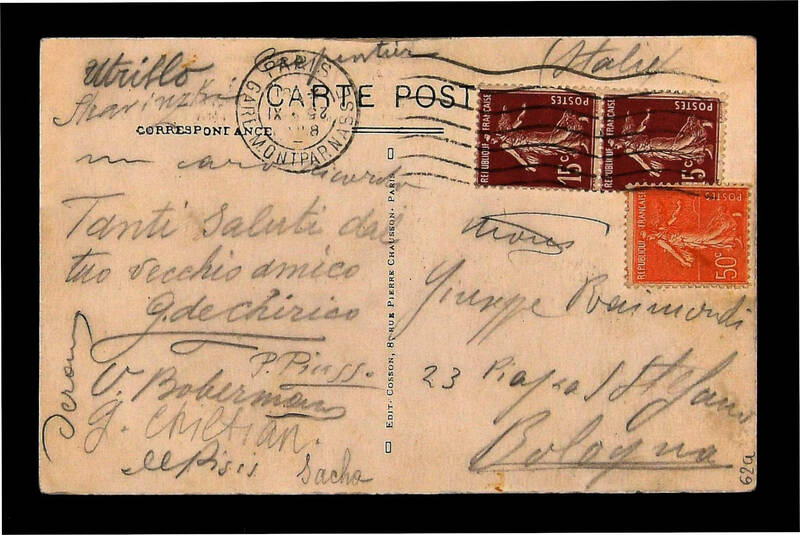 Utrillo
Carpentier
(Italie)
PARIS
GARE MONTPARNASSE
25 XI
CARTE POST
CORRESPONDANCE
un caro ricordo
Tanti saluti dal
tuo vecchio amico
G. de Chirico
V. Boberman
G. Christian.
de Pisis
Sacha
EDIT. COSSON, 8, RUE PIERRE CHAUSSON. PARIS
REPUBLIQUE FRANÇAISE
POSTES
15c
REPUBLIQUE FRANÇAISE
POSTES
15c
REPUBLIQUE FRANÇAISE
POSTES
50c
Giuseppe Raimondi
23 Piazza S Stefano
Bologna
62a